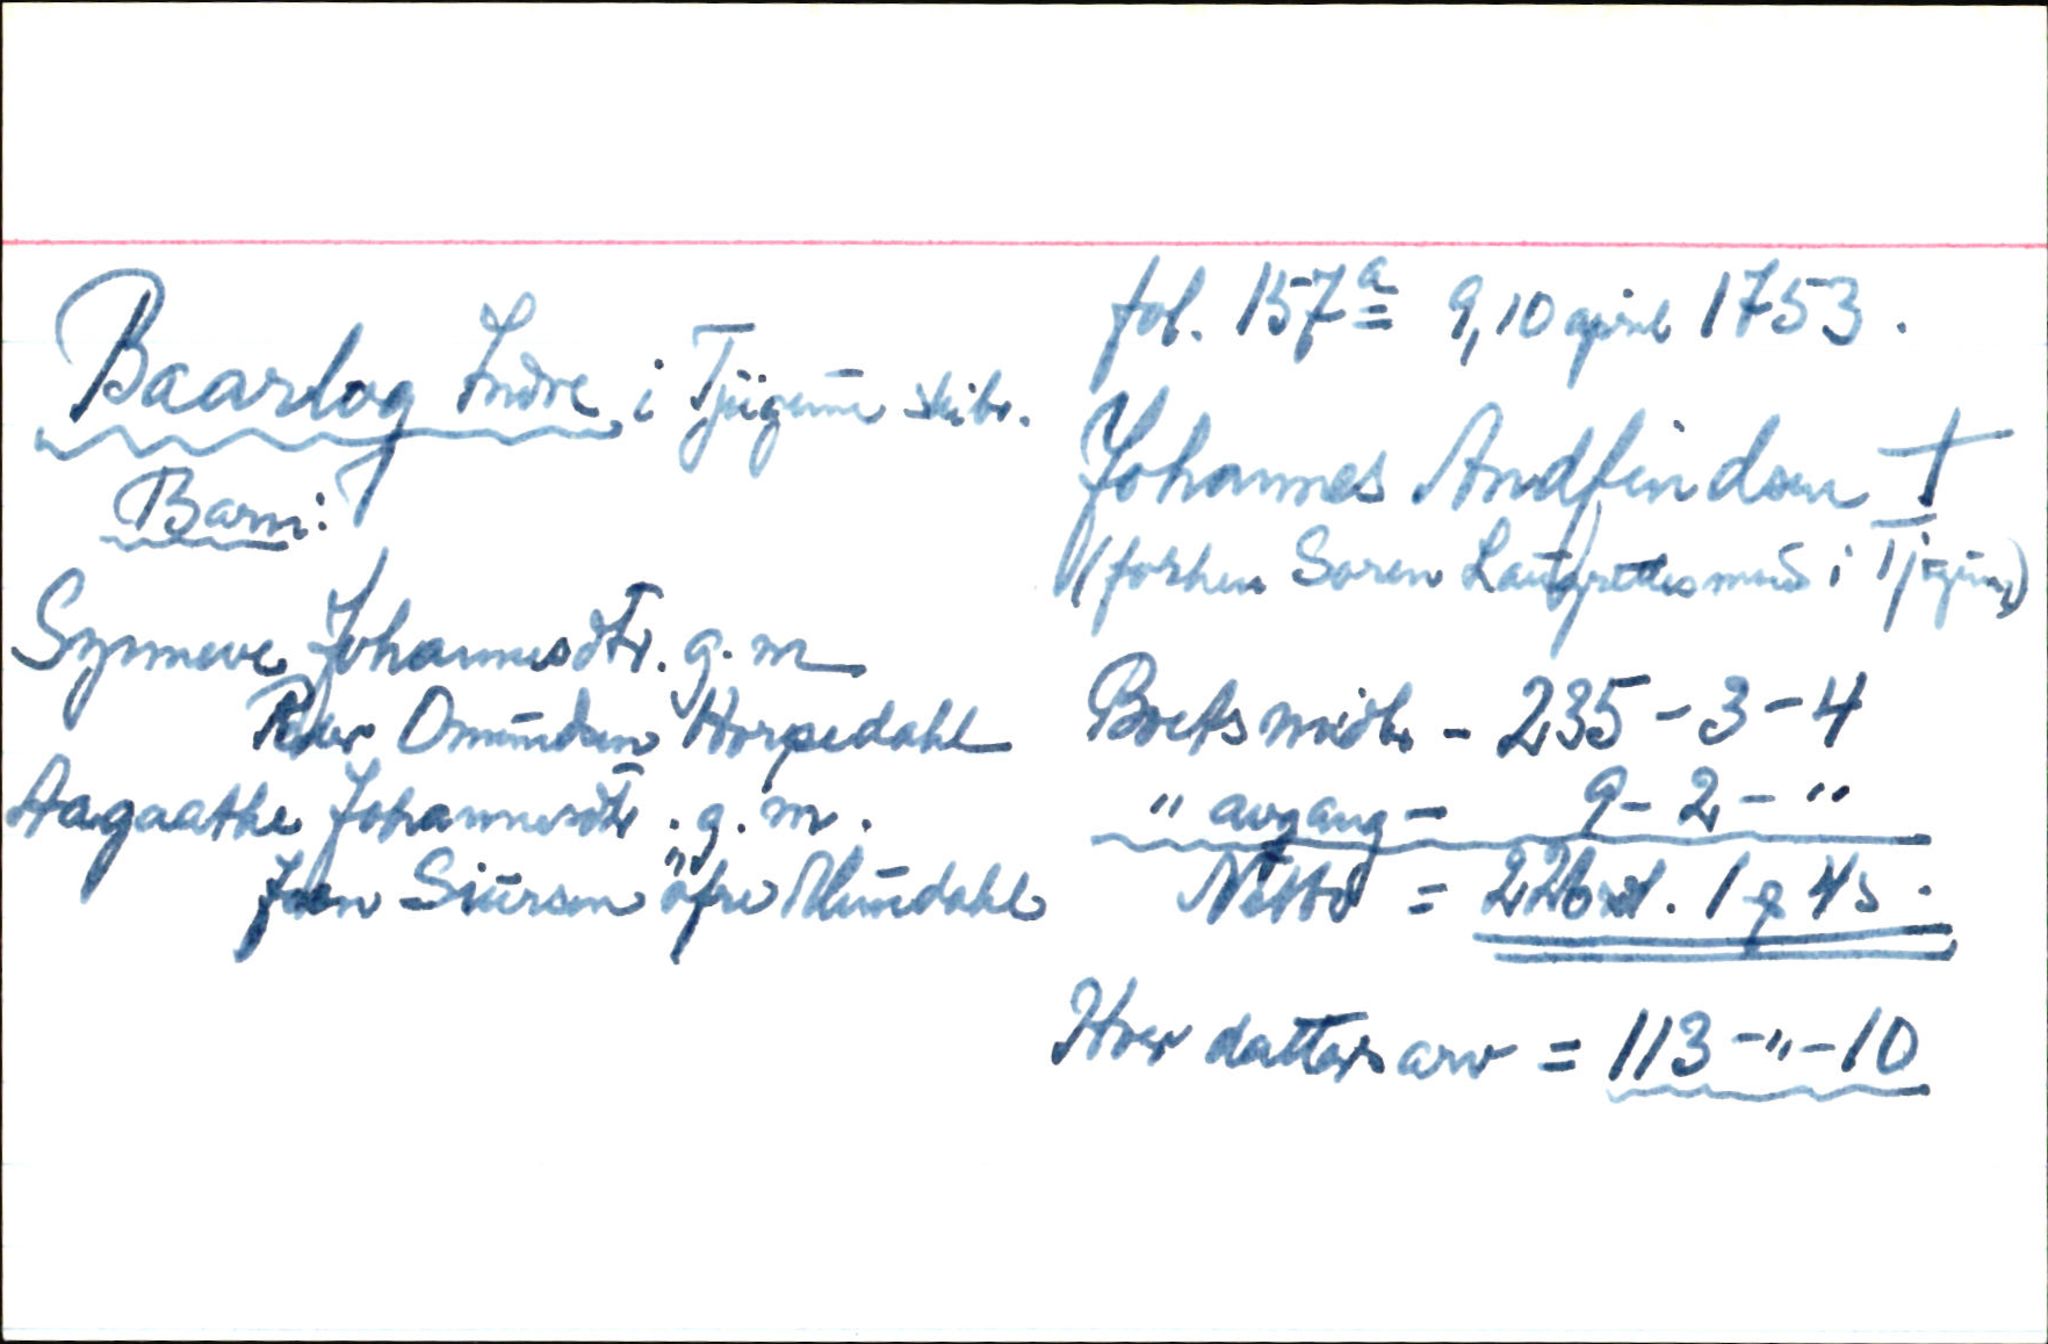 fol. 157a 9, 10 april 1753.
Baarlog Indre i Tjugum skibr.
Johannes Andfindsen †
Barn:
(forhen Soren Laugrettesmand i Tjugum)
Synneve Johannesdtr. g. m
Peder Omundsen Horpedahl
Aagaathe Johannesdtr. g. m.
Joen Siursen öfre Mundahl
Boets midl. - 235 - 3 - 4
" avgang - 9 - 2 - "
Netto = 226 rd. 1 4 s.
Hver datters arv = 113 - " - 10